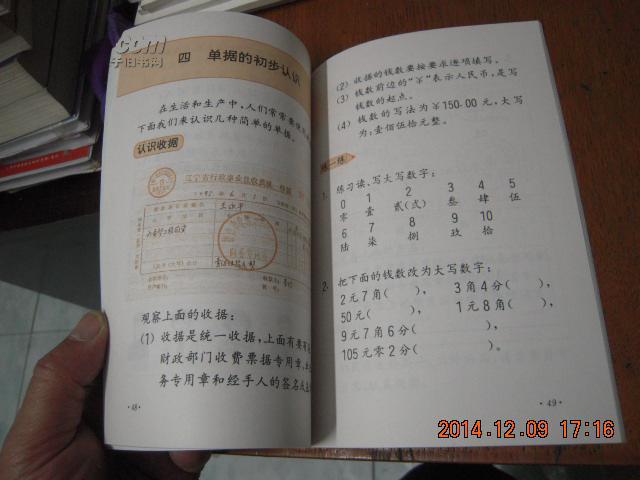 四 单据的初步认识
在生活和生产中，人们常常要使用
下面我们来认识几种简单的单据。
认识收据
观察上面的收据：
(1) 收据是统一收据，上面有要有
财政部门收费票据专用章，
务专用章和经手人的签名或
·48·
(2) 收据的钱数要按要求逐项填写。
(3) 钱数前边的“￥”表示人民币，是写
钱数的起点。
(4) 钱数的写法为￥150.00元，大写
为：壹佰伍拾元整。
练一练
1. 练习读、写大写数字：
0 1 2 3 4 5
零 壹 贰(弍) 叁 肆 伍
6 7 8 9 10
陆 柒 捌 玖 拾
2. 把下面的钱数改为大写数字：
2元7角( )， 3角4分( )，
50元( )， 1元8角( )，
9元7角6分( )，
105元零2分( )。
·49·
2014.12.09 17:16